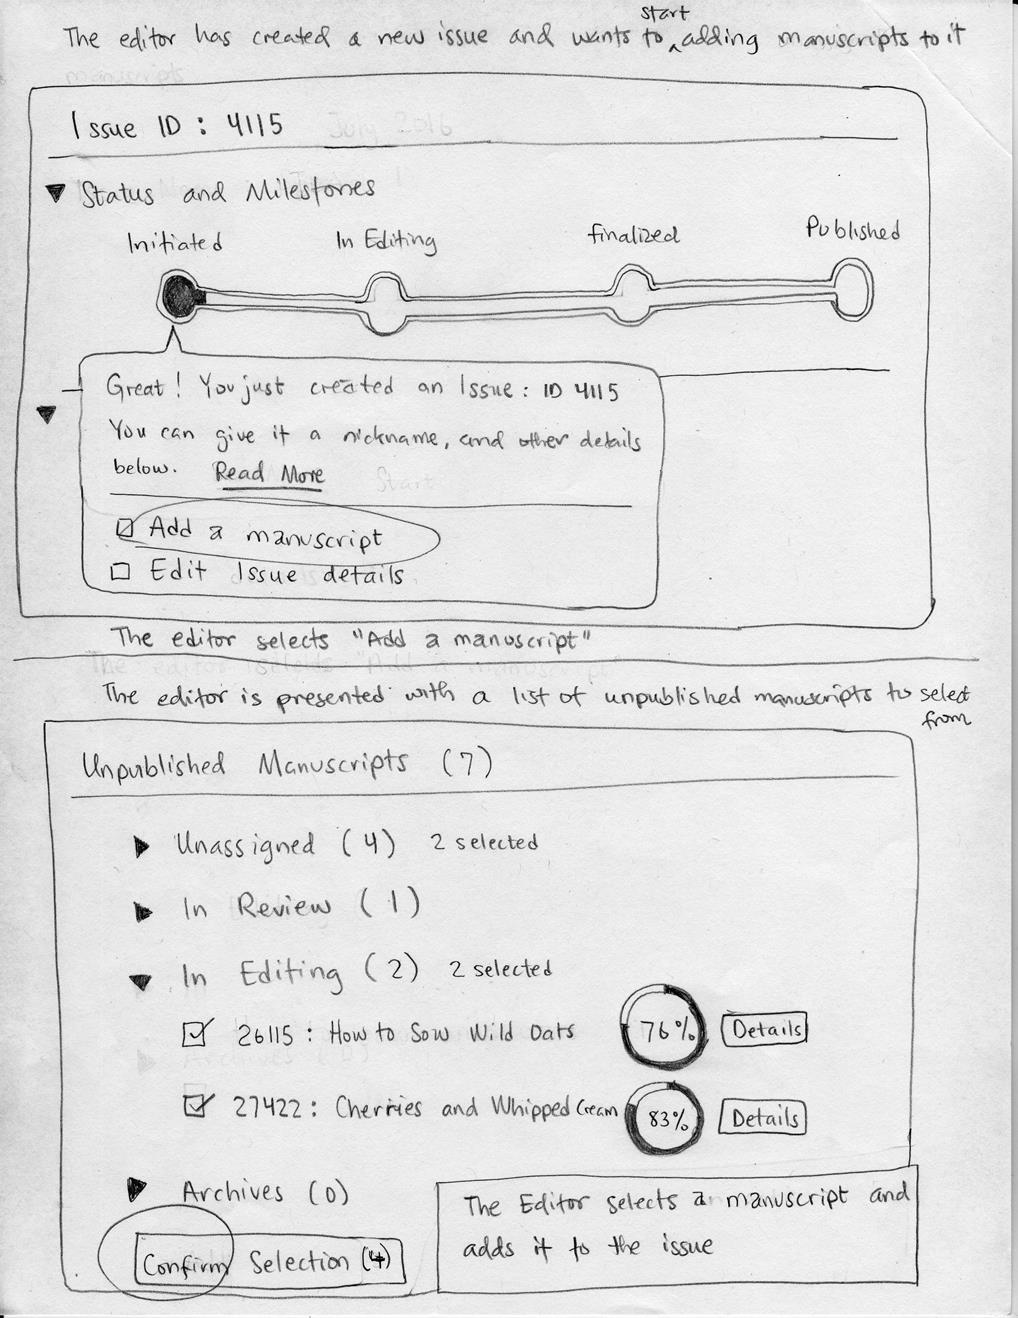 start
The editor has created a new issue and wants to ^ adding manuscripts to it
manuscripts
Issue ID : 4115 July 2016
Status and Milestones
Initiated In Editing finalized Published
Great! You just created an Issue : ID 4115
You can give it a nickname, and other details
below. Read More
Start
Add a manuscript
Edit Issue details
The editor selects "Add a manuscript"
The editor selects "Add a manuscript"
The editor is presented with a list of unpublished manuscripts to select
from
Unpublished Manuscripts (7)
Unassigned (4) 2 selected
In Review (1)
In Editing (2) 2 selected
26115 : How to Sow Wild Oats 76% Details
Archives (0)
27422 : Cherries and Whipped Cream 83% Details
Archives (0)
Confirm Selection (4)
The Editor selects a manuscript and
adds it to the issue